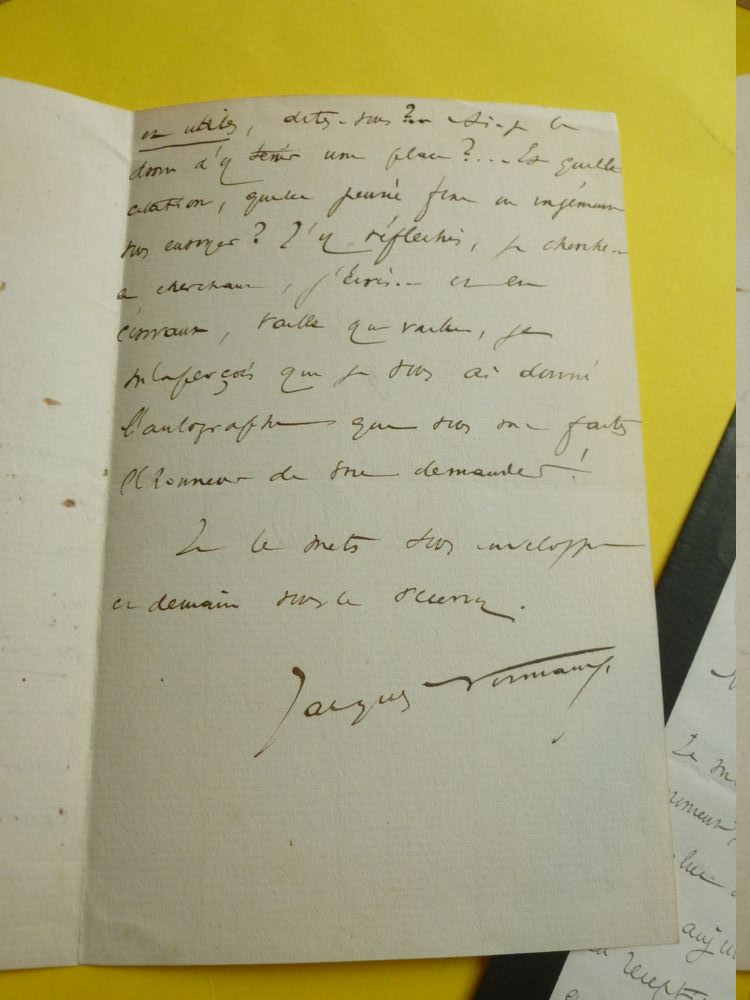 et utiles, dites-vous ?... Ai-je le
droit d'y tenir une place ?... Et quelle
citation, quelle pensée fine ou ingénieuse
vous envoyer ? J'y réfléchis, je cherche...
en cherchant, j'écris... et en
écrivant, vaille que vaille, je
m'aperçois que je vous ai donné
l'autographe que vous me faites
l'honneur de me demander !
Je le mets sous enveloppe
et demain vous le recevrez.
Jacques Normand
Le
aujour